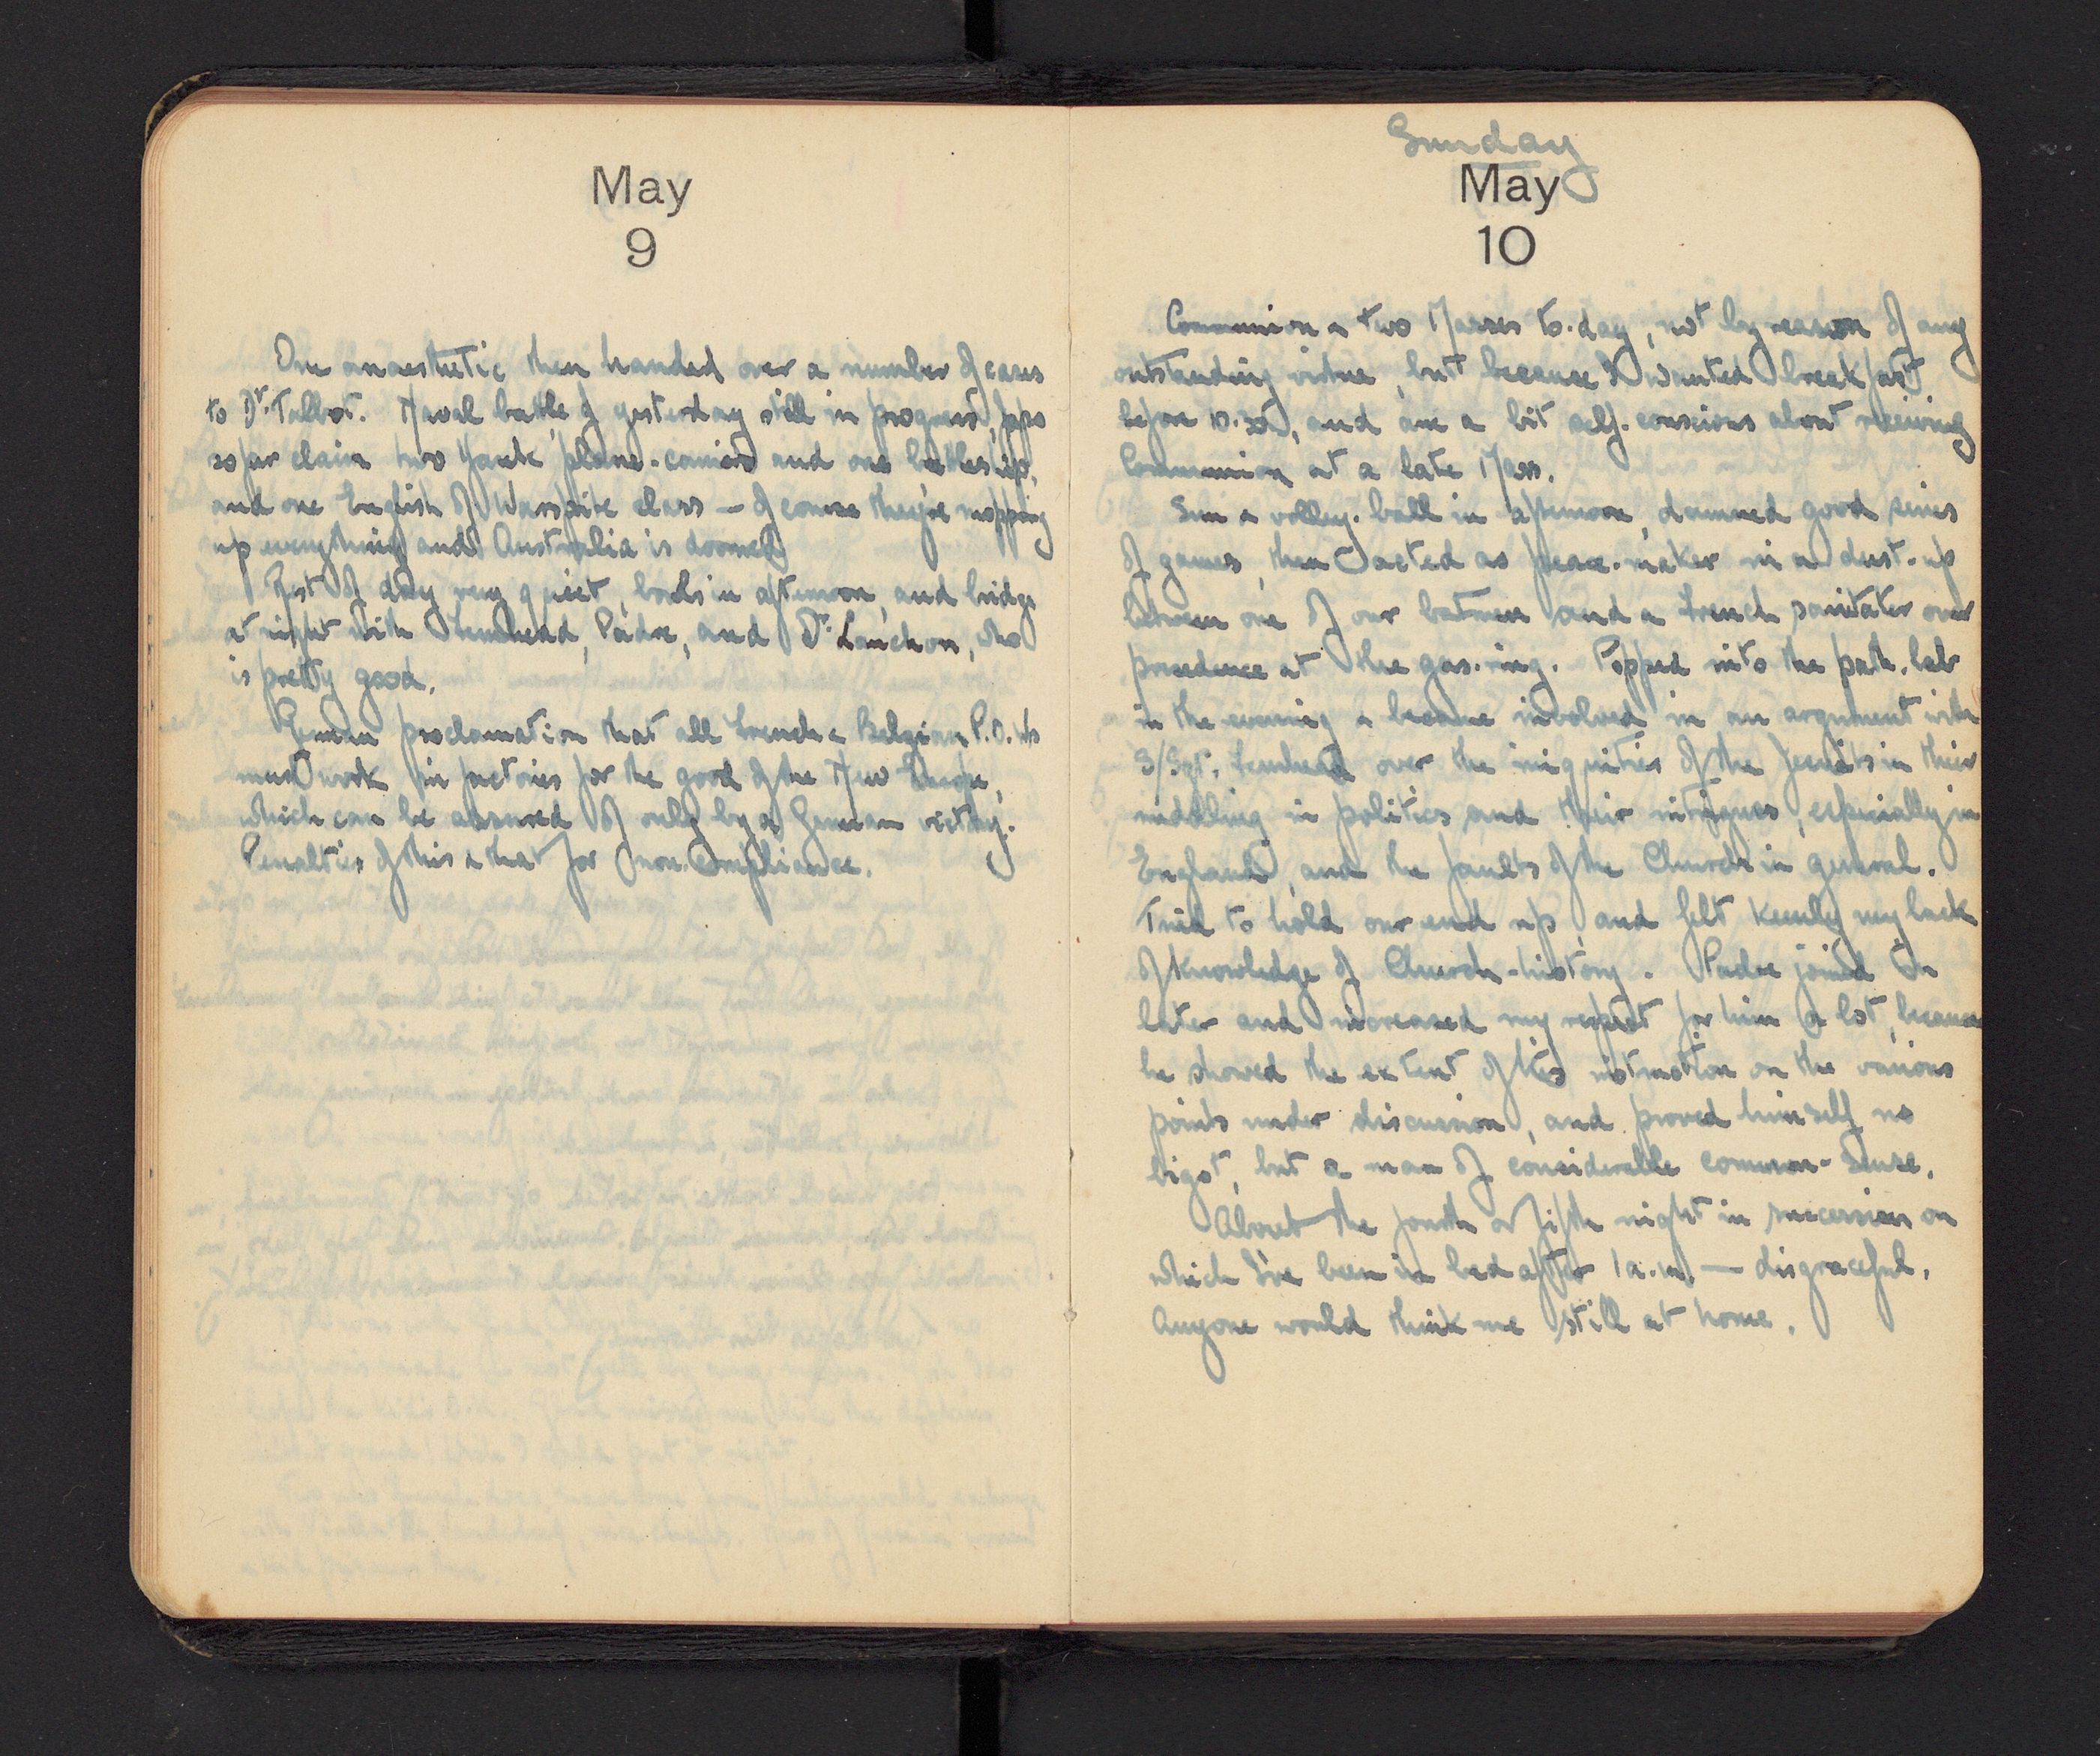 May
9
One anaesthetic then handed over a number of cases
to Dr. Talbot. Naval battle of yesterday still in progress, Japs
so far claim two Yank plane-carriers and one battleship,
and one English of Warspite class — of course they're mopping
up everything and Australia is doomed.
Rest of day very quiet, bowls in afternoon, and bridge
at night with Lewhead, Padre, and Dr. Lauchon, who
is pretty good.
German proclamation that all French & Belgian P.O.Ws
must work in factories for the good of the New Europe,
which can be assured of only by a German victory.
Penalties of this & that for non-compliance.
Sunday
May
10
Communion & two Masses to-day, not by reason of any
outstanding virtue, but because I wanted breakfast
before 10.30, and am a bit self-conscious about receiving
Communion at a late Mass.
Sun & volley-ball in afternoon, damned good series
of games, then I acted as peace-maker in a dust-up
between one of our batmen and a French sanitater over
precedence at the gas-ring. Popped into the path. lab
in the evening & became involved in an argument with
S/Sgt. Lewhead over the iniquities of the Jesuits in their
meddling in politics and their intrigues, especially in
England, and the faults of the Church in general.
Tried to hold our end up, and felt keenly my lack
of knowledge of Church-history. Padre joined in
later and increased my respect for him a lot, because
he showed the extent of his instruction on the various
points under discussion, and proved himself no
bigot, but a man of considerable common-sense.
About the fourth or fifth night in succession on
which I've been in bed after 1 a.m. — disgraceful.
Anyone would think me still at home.